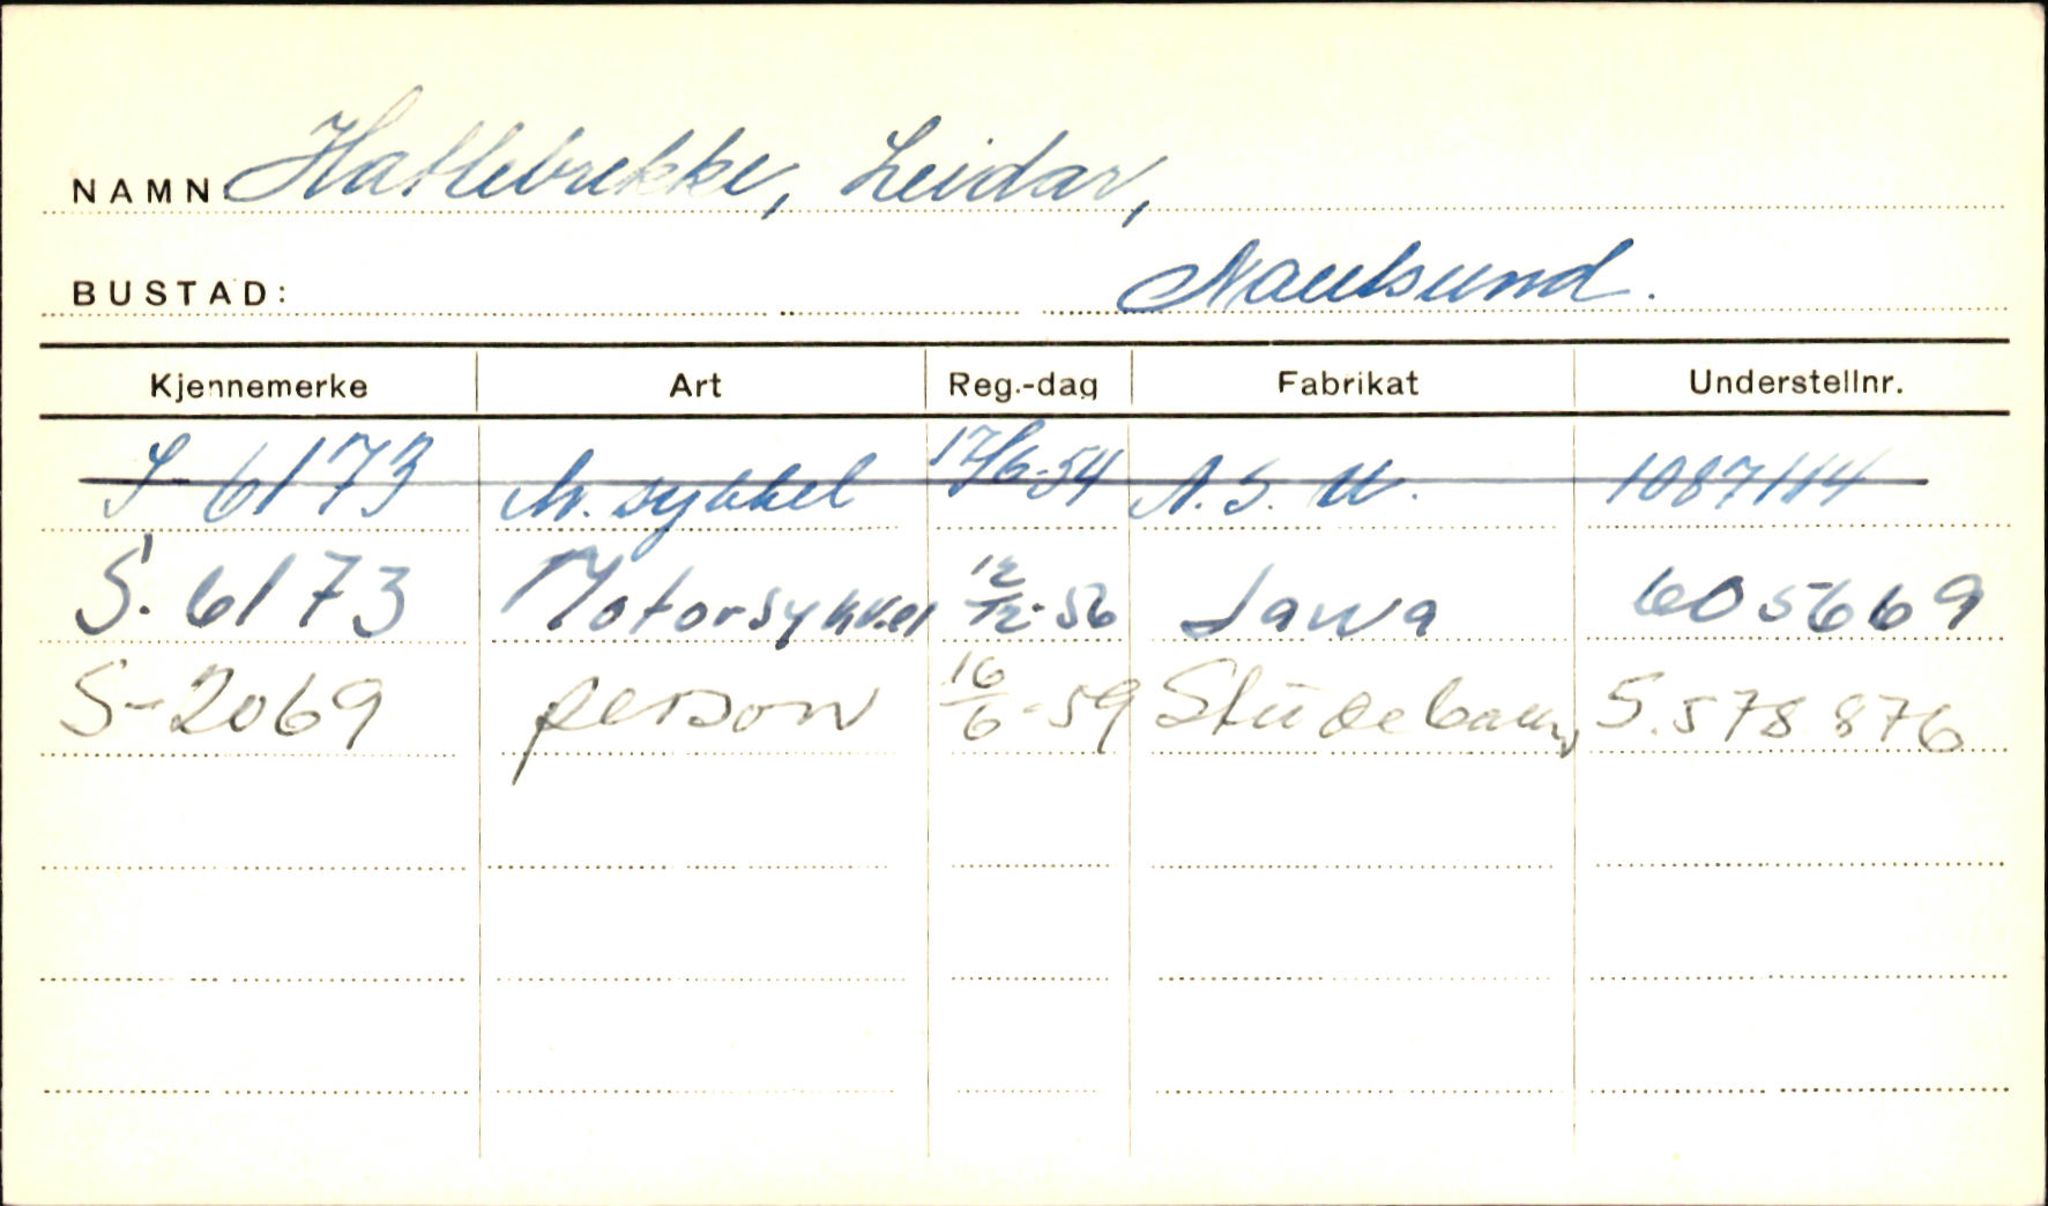 NAMN Hatlebrekke, Leidar,
BUSTAD: Naulsund.
Kjennemerke Art Reg.-dag Fabrikat Understellnr.
S 6173 M. sykkel 17/6-54 N.S.U. 1087114
S. 6173 Motorsykkel 12/12-56 Jawa 605669
S-2069 person 16/6-59 Studebaker 5.578 876